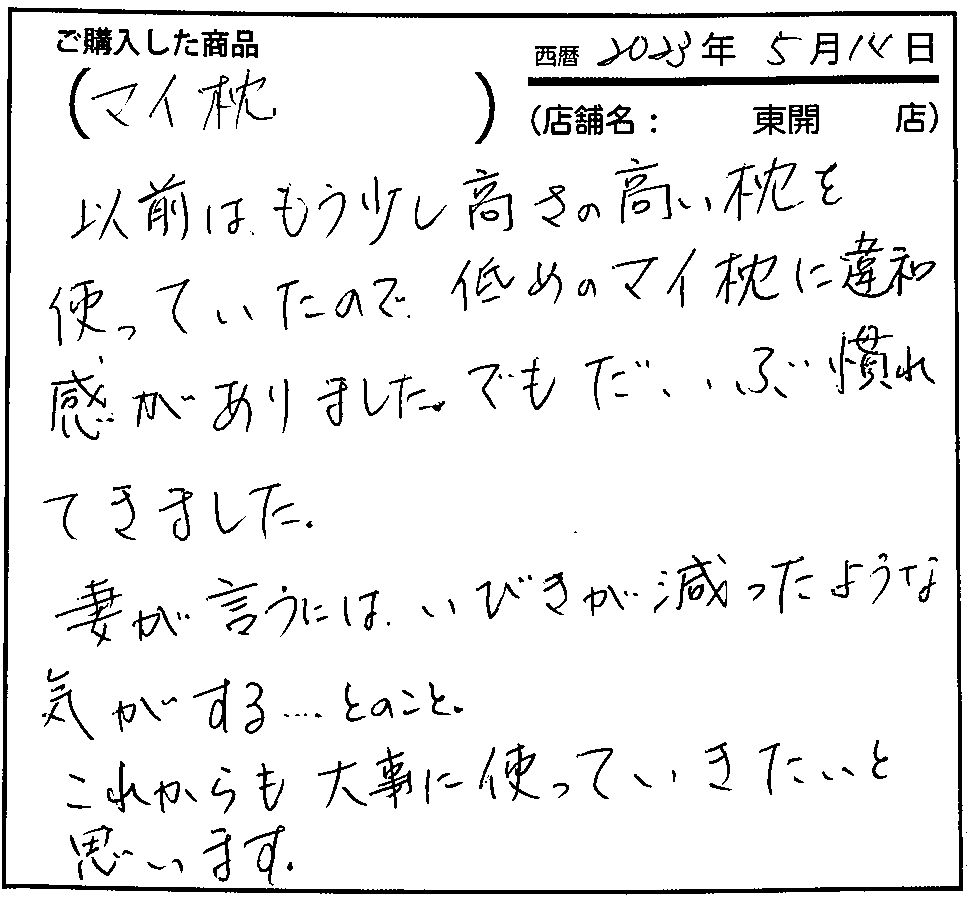 ご購入した商品
(マイ枕)
西暦 2023年 5月14日
(店舗名： 東開 店)
以前は、もう少し高さの高い枕を
使っていたので、低めのマイ枕に違和
感がありました。でもだいぶ慣れ
てきました。
妻が言うには、いびきが減ったような
気がする…とのこと。
これからも大事に使っていきたいと
思います。